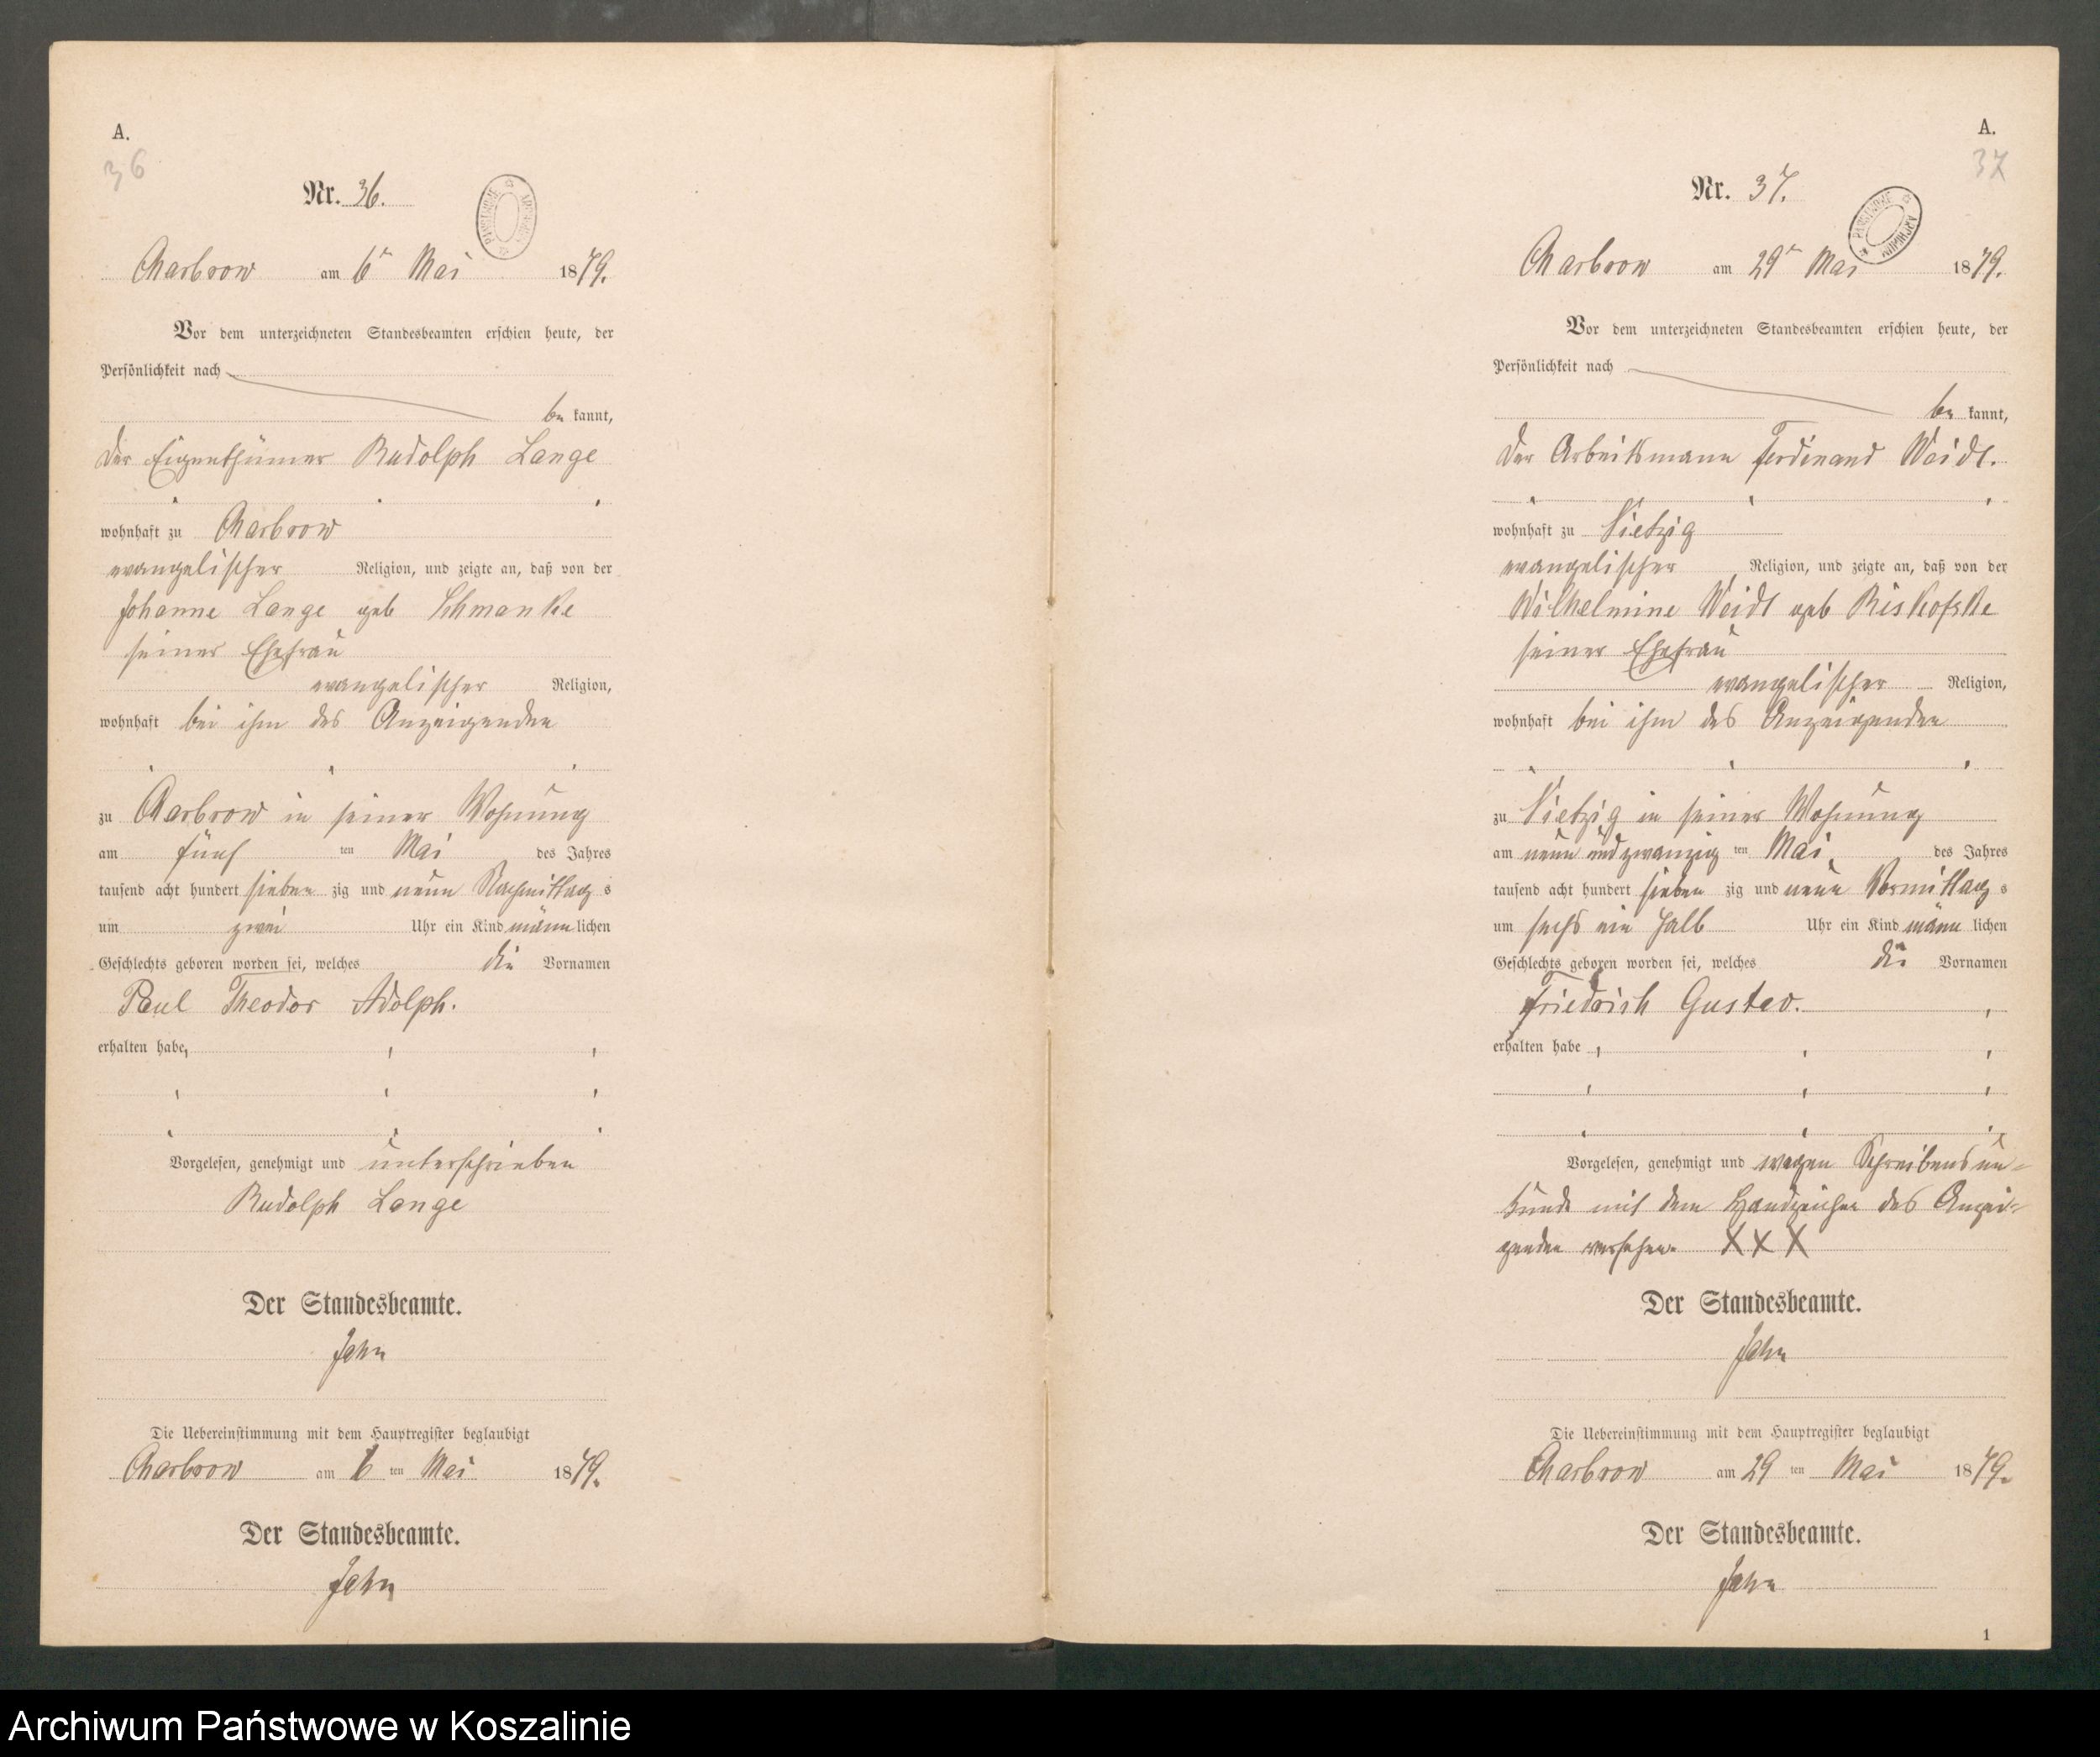 A.
36
Nr. 36.
Charbrow am 6n Mai 1879.
Vor dem unterzeichneten Standesbeamten erschien heute, der
Persönlichkeit nach
be kannt,
Der Eigenthümer Rudolph Lange
wohnhaft zu Charbrow
evangelischer Religion, und zeigte an, daß von der
Johanne Lange geb Schmanke
seiner Ehefrau
evangelischer Religion,
wohnhaft bei ihm des Anzeigenden
zu Charbrow in seiner Wohnung
am fünf ten Mai des Jahres
tausend acht hundert sieben zig und neun Nachmittag s
um zwei Uhr ein Kind männ lichen
Geschlechts geboren worden sei, welches die Vornamen
Paul Theodor Adolph.
erhalten habe,
Vorgelesen, genehmigt und unterschrieben
Rudolph Lange
Der Standesbeamte.
Jahn
Die Uebereinstimmung mit dem Hauptregister beglaubigt
Charbrow am 6 ten Mai 1879.
Der Standesbeamte.
Jahn
A.
37
Nr. 37.
Charbrow am 29n Mai 1879.
Vor dem unterzeichneten Standesbeamten erschien heute, der
Persönlichkeit nach
be kannt,
Der Arbeitsmann Ferdinand Weidt.
wohnhaft zu Vietzig
evangelischer Religion, und zeigte an, daß von der
Wilhelmine Weidt geb Riskofske
seiner Ehefrau
evangelischer Religion,
wohnhaft bei ihm des Anzeigenden
zu Vietzig in seiner Wohnung
am neun und zwanzig ten Mai des Jahres
tausend acht hundert sieben zig und neun Vormittag s
um sechs ein halb Uhr ein Kind männ lichen
Geschlechts geboren worden sei, welches die Vornamen
Friedrich Gustav.
erhalten habe
Vorgelesen, genehmigt und wegen Schreibensun-
kunde mit dem Handzeichen des Anzei-
genden versehen. XXX
Der Standesbeamte.
Jahn
Die Uebereinstimmung mit dem Hauptregister beglaubigt
Charbrow am 29 ten Mai 1879.
Der Standesbeamte.
Jahn
1
Archiwum Państwowe w Koszalinie